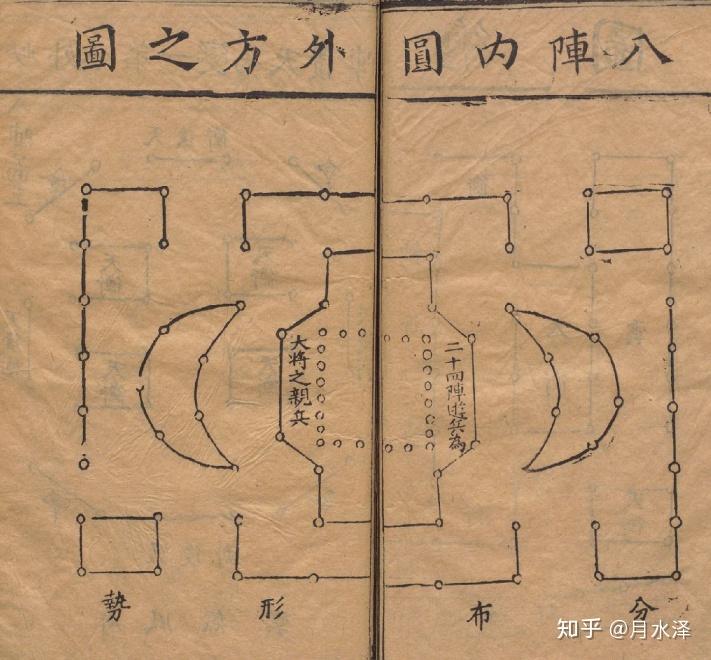 八陣內圓外方之圖
二十四陣遊兵為
大將之親兵
分布形勢
知乎 @月水泽